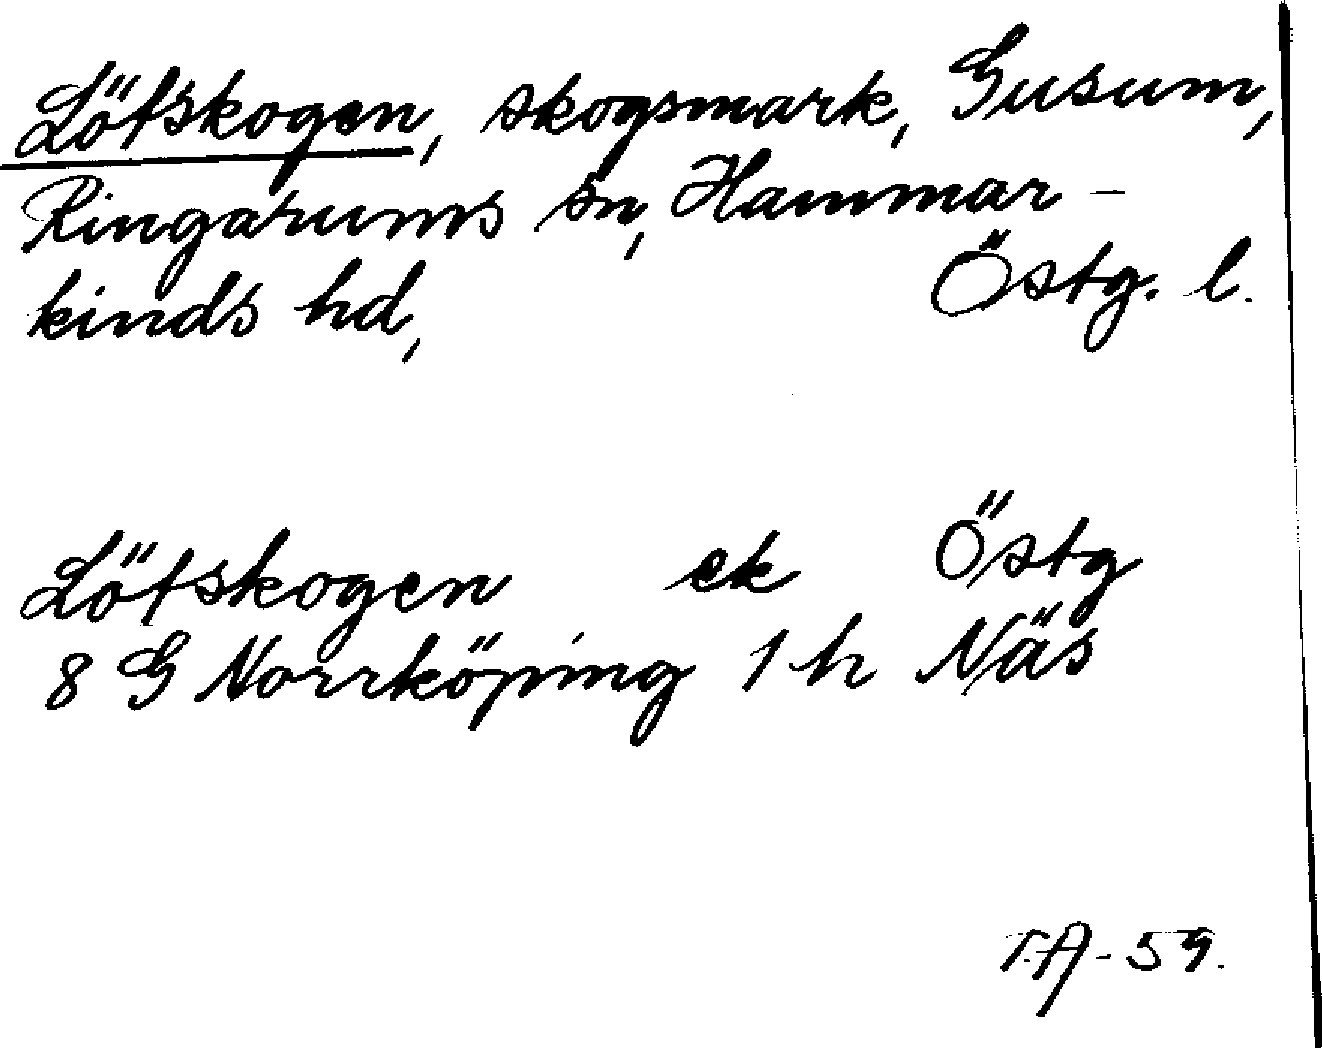 Lötskogen, skogsmark, Gusum,
Ringarums sn, Hammar-
kinds hd, Östg. l.
Lötskogen ek Östg
8 G Norrköping 1 h Näs
T.A-59.